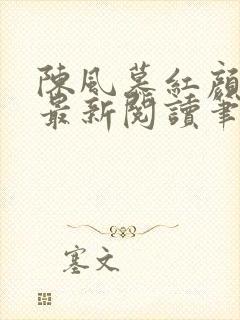 陳風慕紅顏
最新閱讀筆
塞文